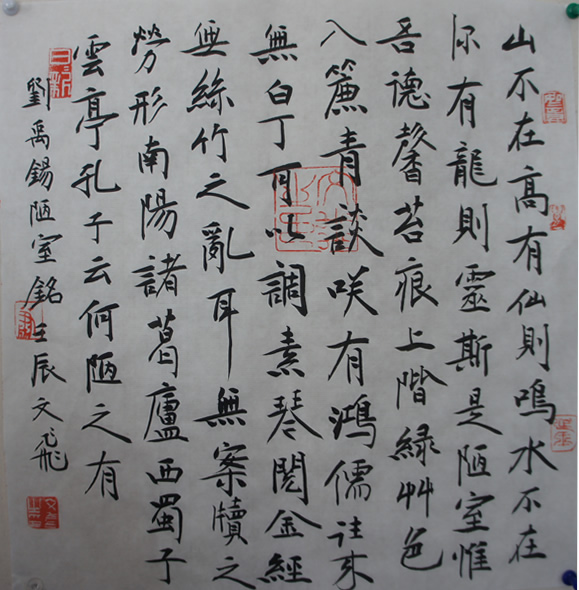 山不在高有仙則鳴水不在
深有龍則靈斯是陋室惟
吾德馨苔痕上階緑艸色
入簾青談咲有鴻儒往来
無白丁可以調素琴閲金經
無絲竹之亂耳無案牘之
勞形南陽諸葛廬西蜀子
雲亭孔子云何陋之有
劉禹錫陋室銘壬辰文飛
日新